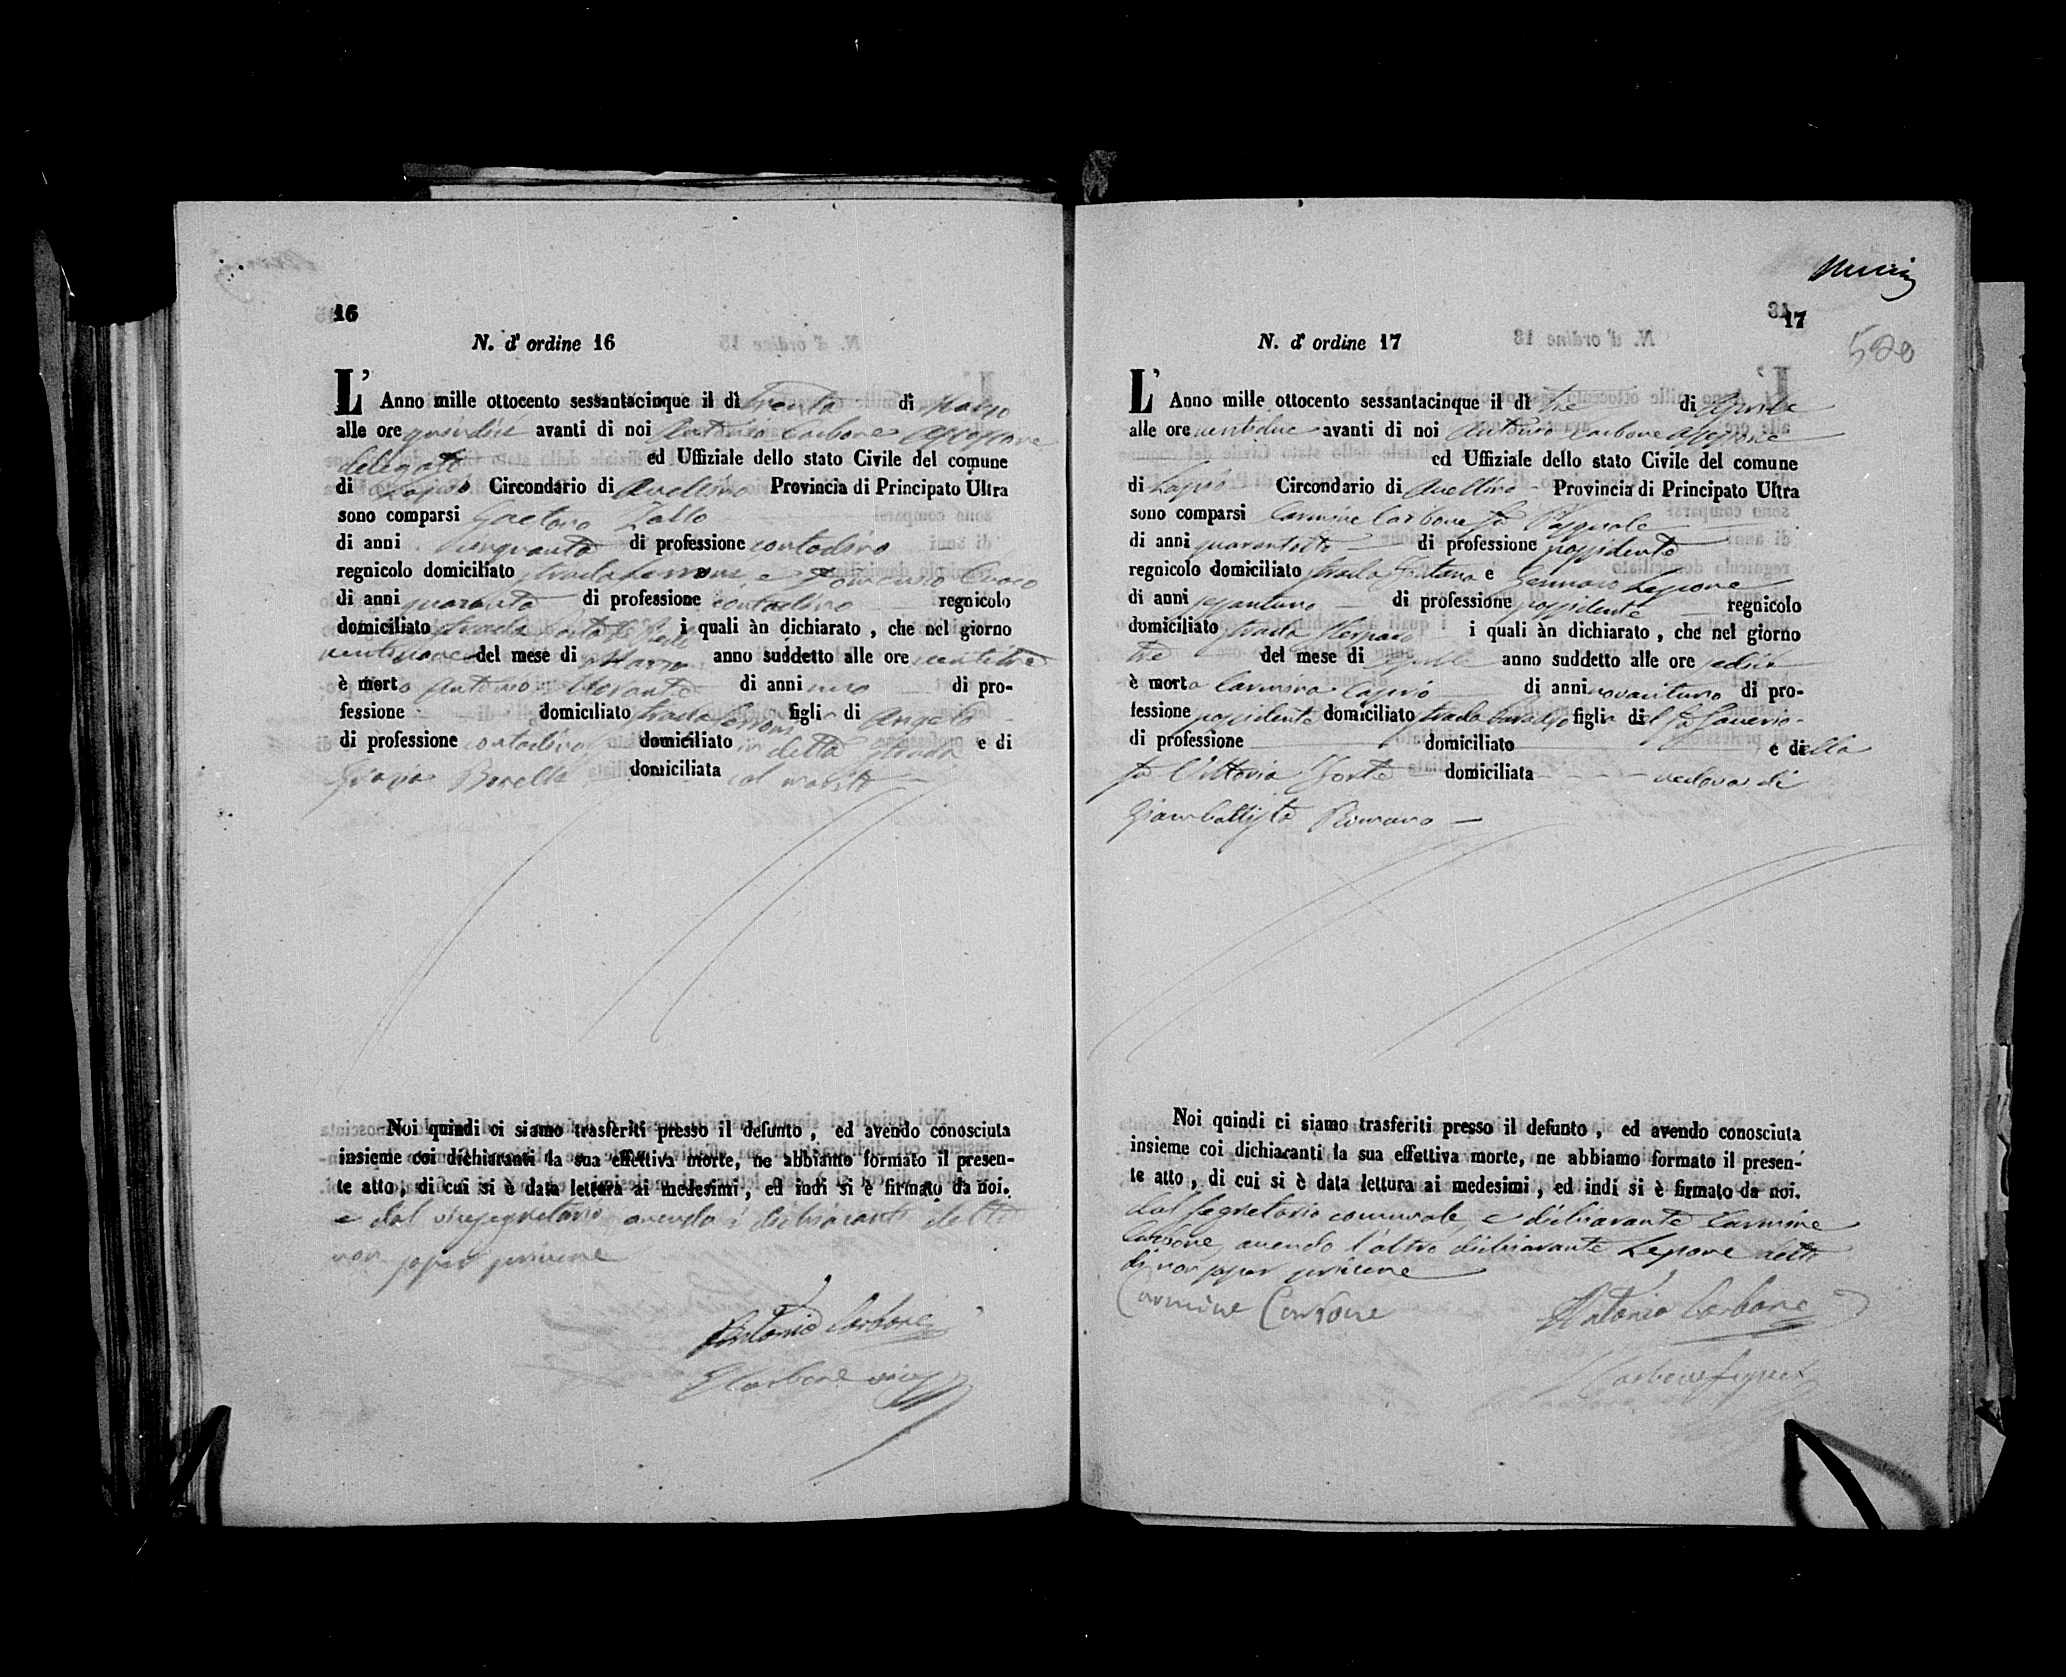 16
N. d' ordine 16
L' Anno mille ottocento sessantacinque il dì trenta di Marzo
alle ore quindici avanti di noi Antonio Carbone Assessore
delegato ed Uffiziale dello stato Civile del comune
di Lapio Circondario di Avellino Provincia di Principato Ultra
sono comparsi Gaetano Zollo
di anni cinquanta di professione contadino
regnicolo domiciliato strada e
di anni quaranta di professione contadino regnicolo
domiciliato strada i quali àn dichiarato, che nel giorno
ventinove del mese di Marzo anno suddetto alle ore ventitre
è morto Antonio Morante di anni uno di pro-
fessione domiciliato strada figlio di Angelo
di professione contadino domiciliato in detta strada e di
domiciliata col marito
Noi quindi ci siamo trasferiti presso il defunto, ed avendo conosciuta
insieme coi dichiaranti la sua effettiva morte, ne abbiamo formato il presen-
te atto, di cui si è data lettura ai medesimi, ed indi si è firmato da noi.
e dal vicesegretario avendo i dichiaranti detto
non saper scrivere
Antonio Carbone
Carbone
17
520
N. d' ordine 17
L' Anno mille ottocento sessantacinque il dì tre di Aprile
alle ore ventidue avanti di noi Antonio Carbone Assessore
ed Uffiziale dello stato Civile del comune
di Lapio Circondario di Avellino Provincia di Principato Ultra
sono comparsi Carmine Carbone fu Pasquale
di anni quarantotto di professione possidente
regnicolo domiciliato strada Fontana e Gennaro Lepore
di anni sessantuno di professione possidente regnicolo
domiciliato strada i quali àn dichiarato, che nel giorno
tre del mese di Aprile anno suddetto alle ore sedici
è morta Carmina Caprio di anni novantuno di pro-
fessione possidente domiciliato strada figlia del fu Saverio
di professione domiciliato e della
fu Vittoria Forte domiciliata vedova di
Giambattista Romano
Noi quindi ci siamo trasferiti presso il defunto, ed avendo conosciuta
insieme coi dichiaranti la sua effettiva morte, ne abbiamo formato il presen-
te atto, di cui si è data lettura ai medesimi, ed indi si è firmato da noi.
dal segretario comunale, e dichiarante Carmine
Carbone, avendo l'altro dichiarante Lepore detto
di non saper scrivere
Carmine Carbone Antonio Carbone
Carbone